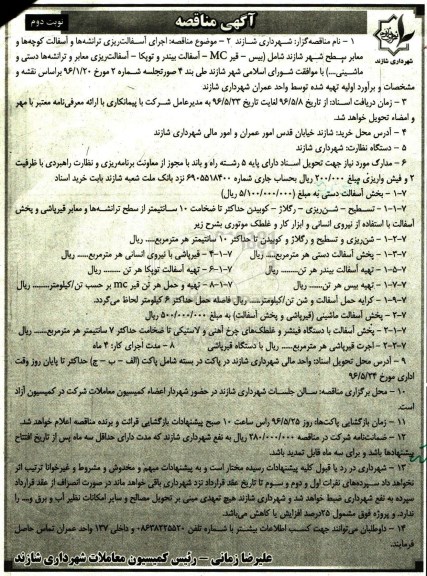 آگهی مناقصه
نوبت دوم
شهرداری شازند
۱ - نام مناقصه‌گزار: شهرداری شازند ۲ - موضوع مناقصه: اجرای آسفالت‌ریزی ترانشه‌ها و آسفالت کوچه‌ها و
معابر سطح شهر شازند شامل (بیس - قیر MC - آسفالت بیندر و توپکا - آسفالت‌ریزی معابر و ترانشه‌ها دستی و
ماشینی...) با موافقت شورای اسلامی شهر شازند طی بند ۴ صورتجلسه شماره ۲ مورخ ۹۶/۱/۲۰ براساس نقشه و
مشخصات و برآورد اولیه تهیه شده توسط واحد عمران شهرداری شازند
۳ - زمان دریافت اسناد: از تاریخ ۹۶/۵/۸ لغایت تاریخ ۹۶/۵/۲۳ به مدیرعامل شرکت یا پیمانکاری با ارائه معرفی‌نامه معتبر با مهر
و امضاء تحویل خواهد شد.
۴ - آدرس محل خرید: شازند خیابان قدس امور عمران و امور مالی شهرداری شازند
۵ - دستگاه نظارت: شهرداری شازند
۶ - مدارک مورد نیاز جهت تحویل اسناد دارای پایه ۵ رشته راه و باند با مجوز از معاونت برنامه‌ریزی و نظارت راهبردی با ظرفیت
۲ و فیش واریزی مبلغ ۲۰۰/۰۰۰ ریال بحساب جاری شماره ۶۹۰۵۵۱۸۴۰۰ نزد بانک ملت شعبه شازند بابت خرید اسناد
۷-۱ - پخش آسفالت دستی به مبلغ (۵/۱۰۰/۰۰۰/۰۰۰ ریال)
۷-۱-۱ - تسطیح - شن‌ریزی - رگلاژ - کوبیدن حداکثر تا ضخامت ۱۰ سانتیمتر از سطح ترانشه‌ها و معابر قیرپاشی و پخش
آسفالت با استفاده از نیروی انسانی و ابزار کار و غلطک موتوری بشرح زیر
۷-۱-۲ - شن‌ریزی و تسطیح و رگلاژ و کوبیدن تا حداکثر ۱۰ سانتیمتر هر مترمربع..... ریال
۷-۱-۳ - پخش آسفالت دستی هر مترمربع..... ریال ۷-۱-۴ - قیرپاشی با نیروی انسانی هر مترمربع..... ریال
۷-۱-۵ - تهیه آسفالت بیندر هر تن........ ریال ۷-۱-۶ - تهیه آسفالت توپکا هر تن ........ ریال
۷-۱-۷ - تهیه بیس هر تن...... ریال ۷-۱-۸ - تهیه و حمل هر تن قیر mc بر حسب تن/کیلومتر........ ریال
۷-۱-۹ - کرایه حمل آسفالت و شن تن/کیلومتر..... ریال فاصله حمل حداکثر ۶ کیلومتر لحاظ می‌گردد.
۷-۲ - پخش آسفالت ماشینی (قیرپاشی و پخش آسفالت) به مبلغ ۵۰۰/۰۰۰/۰۰۰ ریال
۷-۲-۱ - پخش آسفالت با دستگاه فینشر و غلطک‌های چرخ آهنی و لاستیکی تا ضخامت حداکثر ۷ سانتیمتر هر مترمربع...... ریال
۷-۲-۲ - اجرت قیرپاشی هر مترمربع...... ریال با دستگاه قیرپاشی ۸ - مدت اجرای کار: ۴ ماه
۹ - آدرس محل تحویل اسناد: واحد مالی شهرداری شازند در پاکت در بسته شامل پاکت (الف - ب - ج) حداکثر تا پایان روز وقت
اداری مورخ ۹۶/۵/۲۴
۱۰ - محل برگزاری مناقصه: سالن جلسات شهرداری شازند در حضور شهردار اعضاء کمیسیون معاملات شرکت در کمیسیون آزاد
است.
۱۱ - زمان بازگشایی پاکت‌ها: روز ۹۶/۵/۲۵ راس ساعت ۱۰ صبح پیشنهادات بازگشایی قرائت و برنده مناقصه اعلام خواهد شد.
۱۲ - ضمانتنامه شرکت در مناقصه ۲۸۰/۰۰۰/۰۰۰ ریال به نفع شهرداری شازند که مدت دارای حداقل سه ماه پس از تاریخ افتتاح
پیشنهادها باشد و برای سه ماه قابل تمدید باشد.
۱۳ - شهرداری در رد یا قبول کلیه پیشنهادات رسیده مختار است و به پیشنهادات مبهم و مخدوش و مشروط و غیرخوانا ترتیب اثر
نخواهد داد سپرده‌های نفرات اول و دوم و سوم تا تاریخ عقد قرارداد نزد شهرداری باقی خواهد ماند در صورت انصراف از عقد قرارداد
سپرده به نفع شهرداری ضبط خواهد شد و شهرداری شازند هیچ تعهدی مبنی بر تحویل مصالح و سایر امکانات نظیر آب و برق و... را
ندارد. و پروژه فوق مشمول ۲۵درصد افزایش یا کاهش می‌باشد.
۱۴ - داوطلبان می‌توانند جهت کسب اطلاعات بیشتر با شماره تلفن ۰۸۶۳۸۲۲۵۵۲۰ و داخلی ۱۳۷ واحد عمران تماس حاصل
فرمایند.
علیرضا زمانی - رئیس کمیسیون معاملات شهرداری شازند